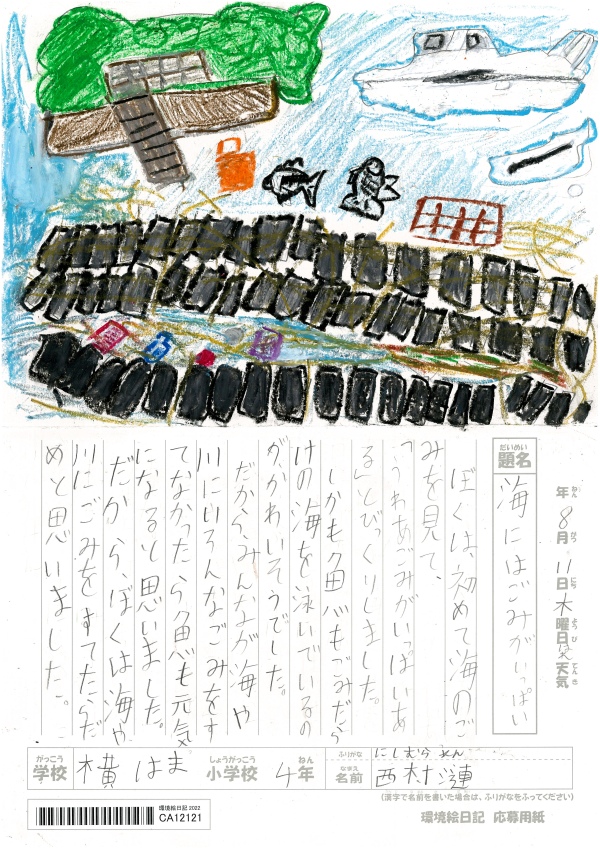 年8月11日木曜日天気
ねん がつ にち ようび てんき
だいめい
題名
海にはごみがいっぱい
ぼくは、初めて海のご
みを見て、
「うわあごみがいっぱいあ
る」とびっくりしました。
しかも魚もごみだら
けの海を泳いでいるの
が、かわいそうでした。
だから、みんなが海や
川にいろんなごみをす
てなかったら魚も元気
になると思いました。
だから、ぼくは海や
川にごみをすてたらだ
めと思いました。
がっこう しょうがっこう ねん
学校 横はま 小学校 4年
ふりがな にしむら れん
なまえ
名前 西村 漣
(漢字で名前を書いた場合は、ふりがなをふってください)
環境絵日記 2022
CA12121
環境絵日記 応募用紙